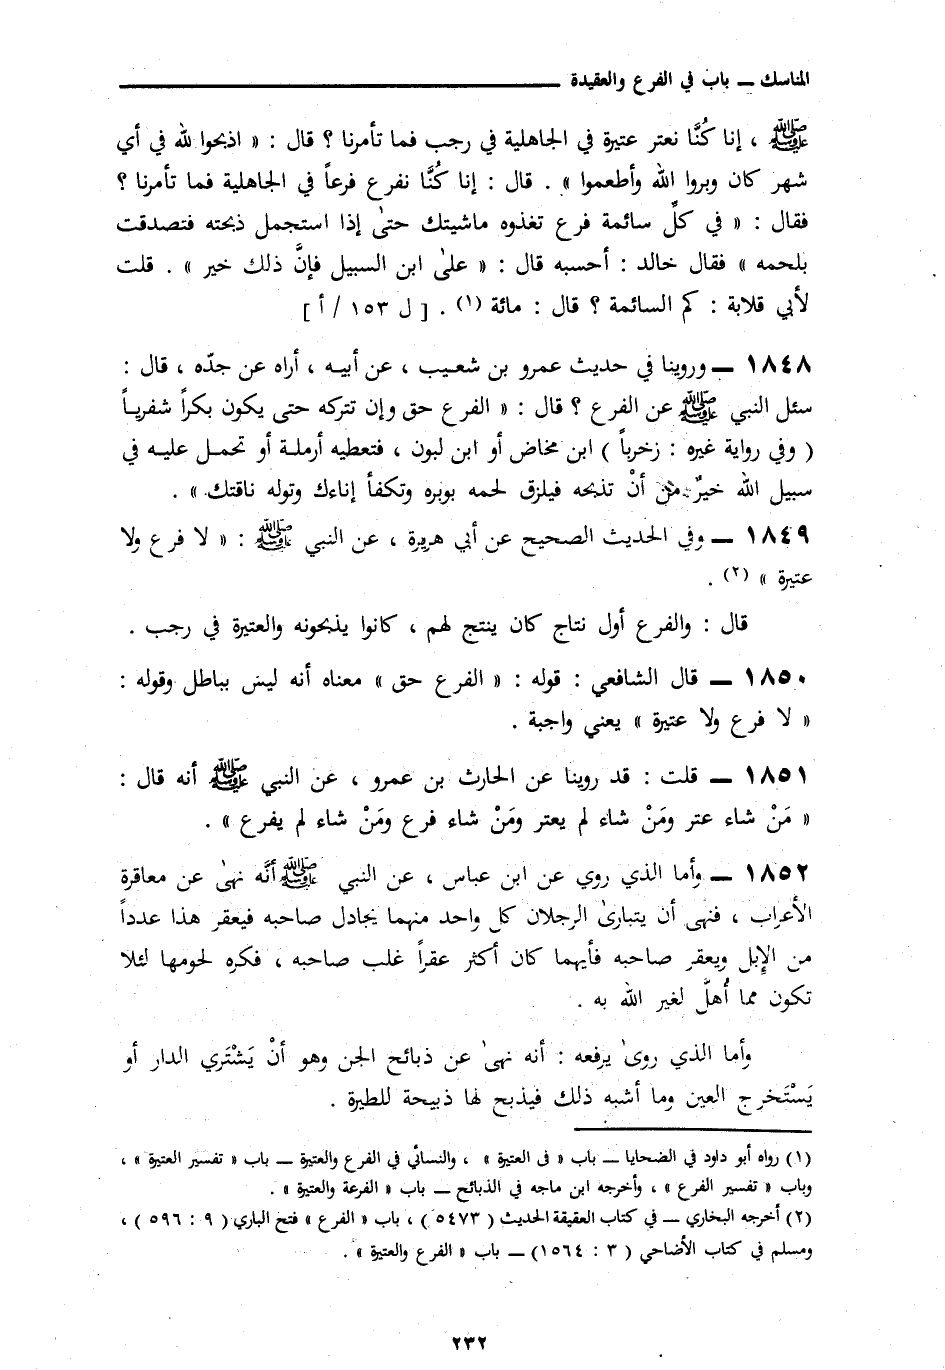 المناسك ــ باب في الفرع والعقيدة
ﷺ ، إنا كُنَّا نعتر عتيرة في الجاهلية في رجب فما تأمرنا ؟ قال : « اذبحوا لله في أي
شهر كان وبروا الله وأطعموا » . قال : إنا كُنَّا نفرع فرعاً في الجاهلية فما تأمرنا ؟
فقال : « في كلِّ سائمة فرع تغذوه ماشيتك حتىٰ إذا استجمل ذبحته فتصدقت
بلحمه » فقال خالد : أحسبه قال : « علىٰ ابن السبيل فإنَّ ذلك خير » . قلت
لأبي قلابة : كم السائمة ؟ قال : مائة (١) . [ ل ١٥٣ / أ ]
١٨٤٨ ــ وروينا في حديث عمرو بن شعيب ، عن أبيه ، أراه عن جدّه ، قال :
سئل النبي ﷺ عن الفرع ؟ قال : « الفرع حق وإن تتركه حتى يكون بكراً شفرياً
( وفي رواية غيره : زخرباً ) ابن مخاض أو ابن لبون ، فتعطيه أرملة أو تحمل عليه في
سبيل الله خيرٌ من أنْ تذبحه فيلزق لحمه بوبره وتكفأ إناءك وتوله ناقتك » .
١٨٤٩ ــ وفي الحديث الصحيح عن أبي هريرة ، عن النبي ﷺ : « لا فرع ولا
عتيرة » (٢) .
قال : والفرع أول نتاج كان ينتج لهم ، كانوا يذبحونه والعتيرة في رجب .
١٨٥٠ ــ قال الشافعي : قوله : « الفرع حق » معناه أنه ليس بباطل وقوله :
« لا فرع ولا عتيرة » يعني واجبة .
١٨٥١ ــ قلت : قد روينا عن الحارث بن عمرو ، عن النبي ﷺ أنه قال :
« مَنْ شاء عتر ومَنْ شاء لم يعتر ومَنْ شاء فرع ومَنْ شاء لم يفرع » .
١٨٥٢ ــ وأما الذي روي عن ابن عباس ، عن النبي ﷺ أنَّه نهىٰ عن معاقرة
الأعراب ، فنهى أن يتبارىٰ الرجلان كل واحد منهما يجادل صاحبه فيعقر هذا عدداً
من الإبل ويعقر صاحبه فأيهما كان أكثر عقراً غلب صاحبه ، فكره لحومها لئلا
تكون مما أُهلَّ لغير الله به .
وأما الذي روىٰ يرفعه : أنه نهىٰ عن ذبائح الجن وهو أنْ يَشْتَري الدار أو
يَسْتَخرج العين وما أشبه ذلك فيذبح لها ذبيحة للطيرة .
(١) رواه أبو داود في الضحايا ــ باب « فى العتيرة » ، والنسائي في الفرع والعتيرة ــ باب « تفسير العتيرة » ،
وباب « تفسير الفرع » ، وأخرجه ابن ماجه في الذبائح ــ باب « الفرعة والعتيرة » .
(٢) أخرجه البخاري ــ في كتاب العقيقة الحديث ( ٥٤٧٣ ) ، باب « الفرع » فتح الباري ( ٩ : ٥٩٦ ) ،
ومسلم في كتاب الأضاحي ( ٣ : ١٥٦٤ ) ــ باب « الفرع والعتيرة » .
٢٣٢